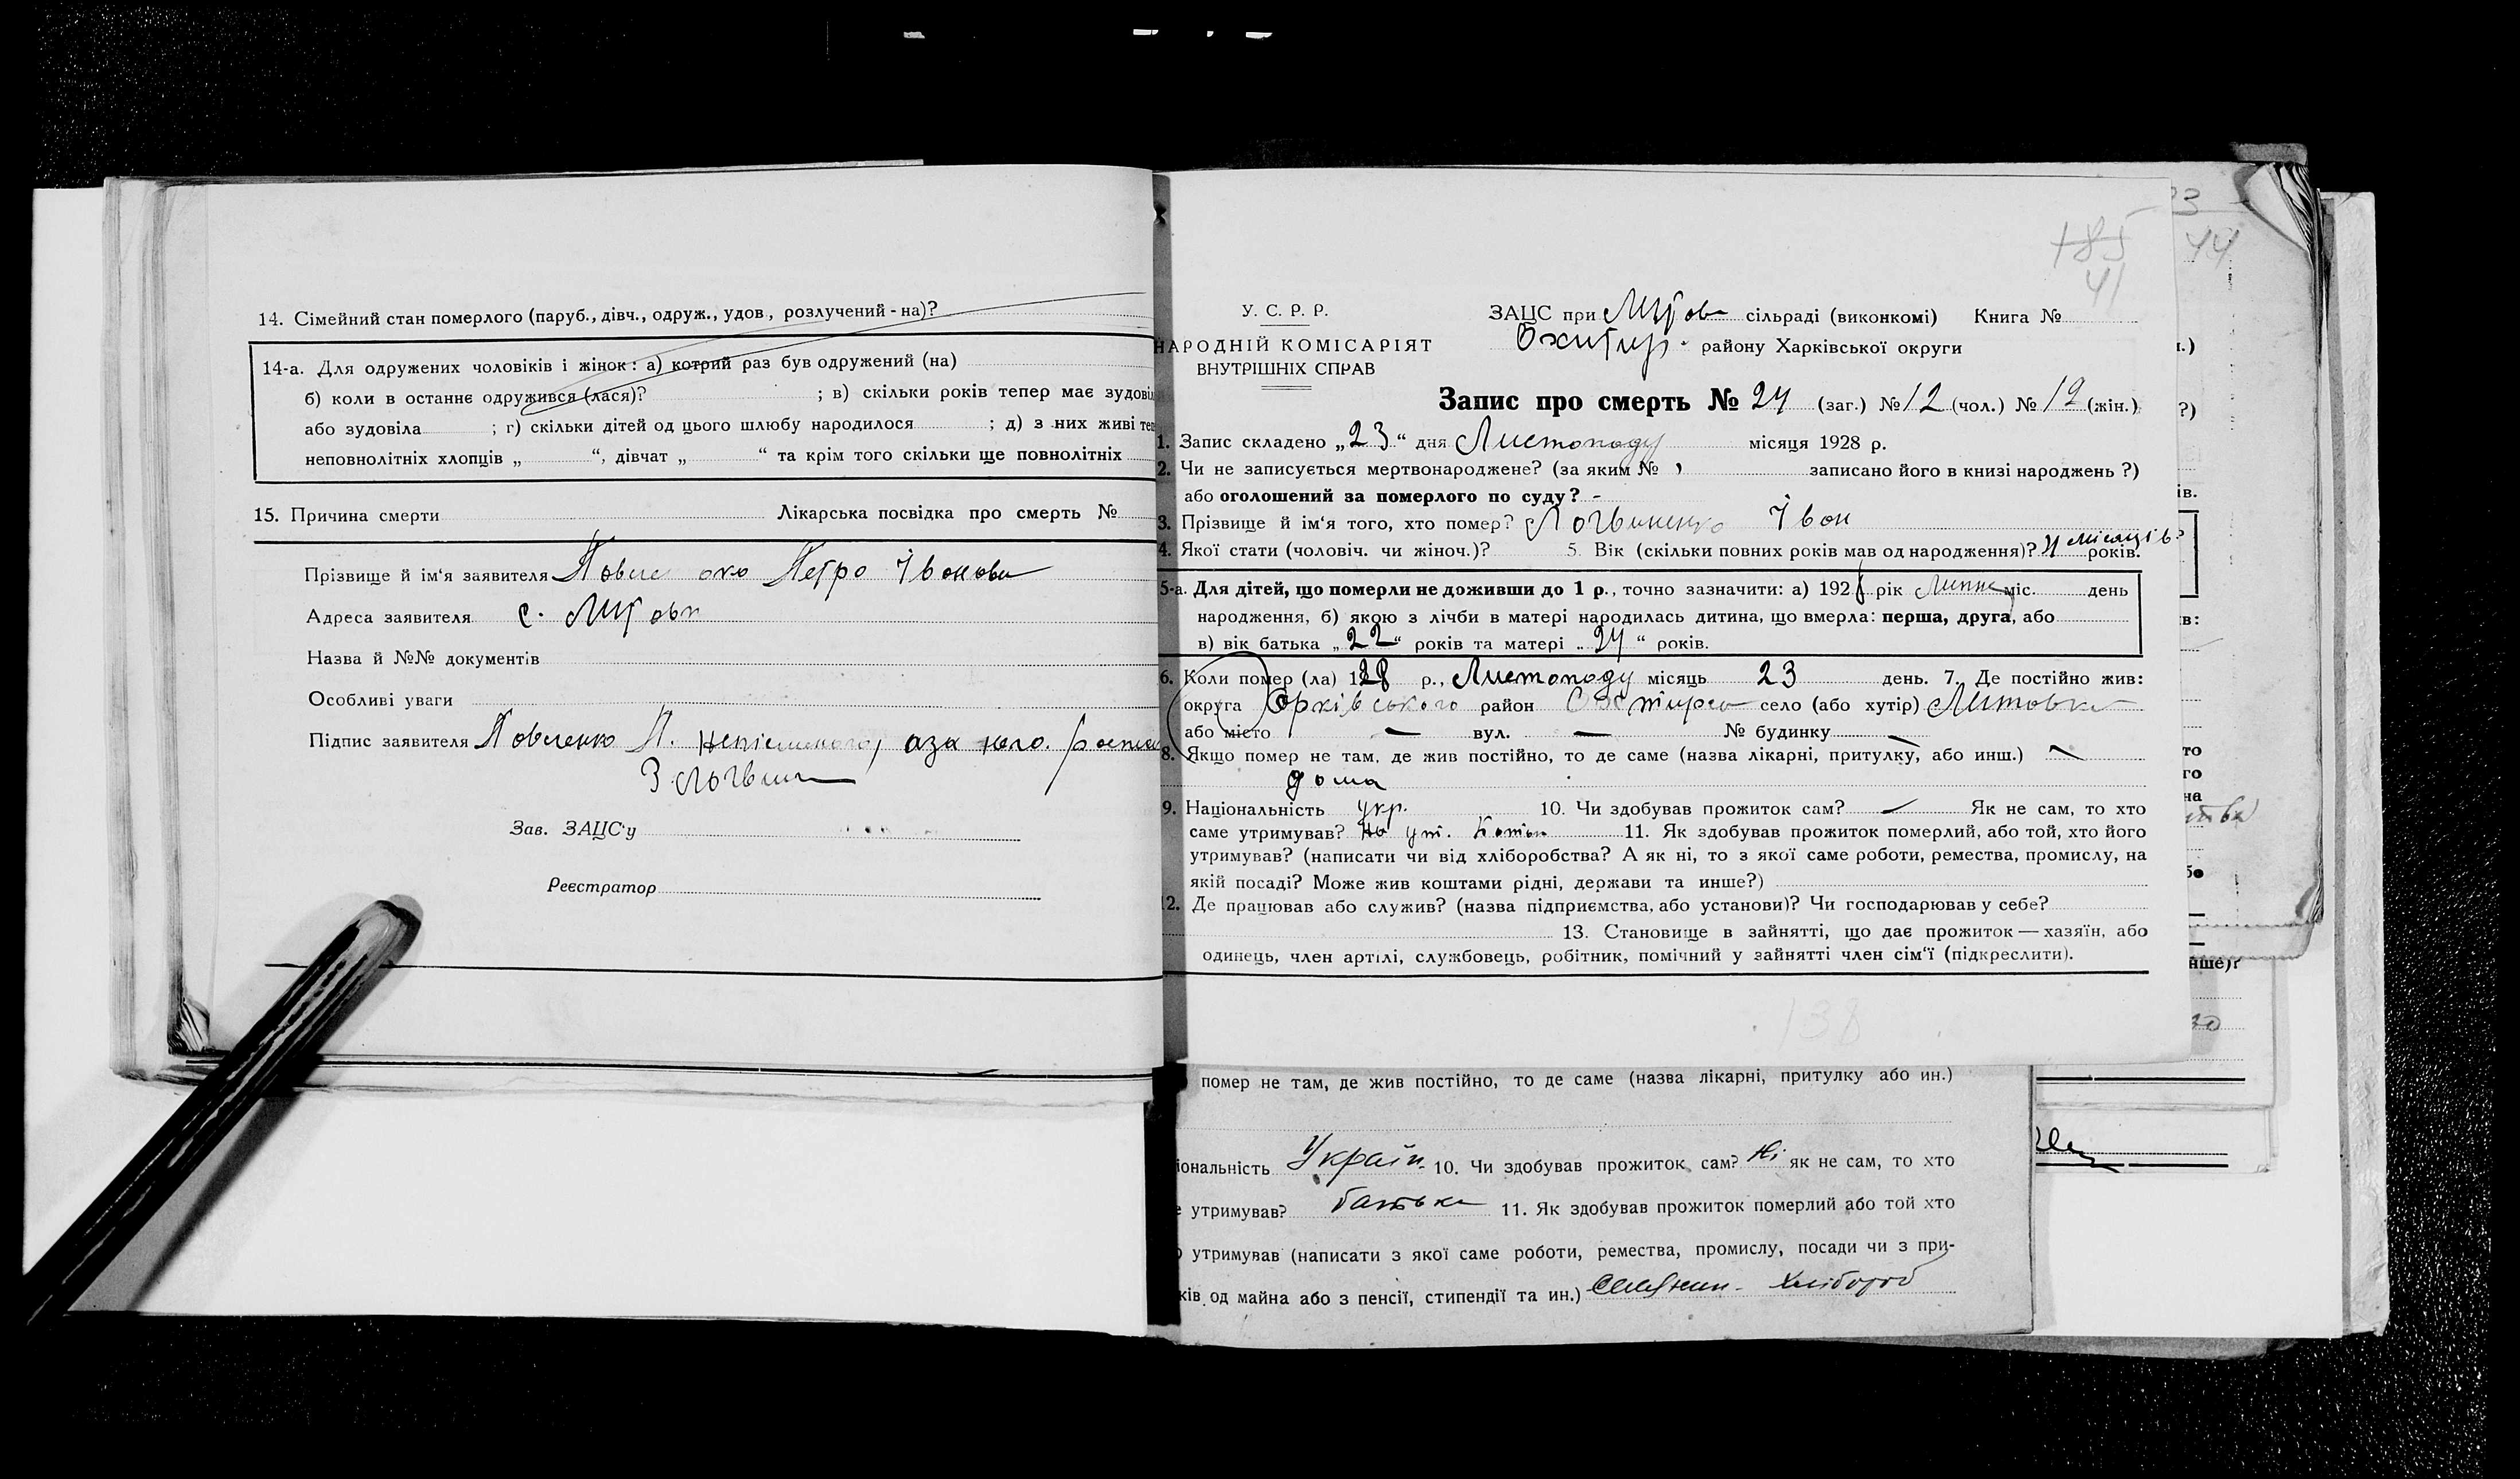 14. Сімейний стан померлого (паруб., дівч., одруж., удов., розлучений - на)?
14-а. Для одружених чоловіків і жінок: а) котрий раз був одружений (на)
б) коли в останнє одружився (лася)? ; в) скільки років тепер має зудові
або зудовіла ; г) скільки дітей од цього шлюбу народилося ; д) з них живі теп
неповнолітніх хлопців „ “, дівчат „ “ та крім того скільки ще повнолітніх
15. Причина смерти Лікарська посвідка про смерть №
Прізвище й ім‘я заявителя Петро Іванови
Адреса заявителя с.
Назва й №№ документів
Особливі уваги
Підпис заявителя Повсленко П. неписьменого, аза него
Зав. ЗАЦС‘у
Реєстратор
185
41
44
У. С. Р. Р.
НАРОДНІЙ КОМІСАРІЯТ
ВНУТРІШНІХ СПРАВ
ЗАЦС при сільраді (виконкомі) Книга №
Охтир. району Харківської округи
Запис про смерть № 24 (заг.) № 12 (чол.) № 12 (жін.)
1. Запис складено „23“ дня Листопаду місяця 1928 р.
2. Чи не записується мертвонароджене? (за яким № записано його в книзі народжень ?)
або оголошений за померлого по суду? -
3. Прізвище й ім‘я того, хто помер? Логвиненко Іван
4. Якої стати (чоловіч. чи жіноч.)? 5. Вік (скільки повних років мав од народження)? 4 місяців років.
5-а. Для дітей, що померли не доживши до 1 р., точно зазначити: а) 1928 рік Липня міс. день
народження, б) якою з лічби в матері народилась дитина, що вмерла: перша, друга, або
в) вік батька „22“ років та матері „24“ років.
6. Коли помер (ла) 1928 р., Листопаду місяць 23 день. 7. Де постійно жив:
округа Харківського район село (або хутір) Литовка
або місто — вул. — № будинку —
8. Якщо помер не там, де жив постійно, то де саме (назва лікарні, притулку, або инш.) —
дома
9. Національність укр. 10. Чи здобував прожиток сам? — Як не сам, то хто
саме утримував? на ут. 11. Як здобував прожиток померлий, або той, хто його
утримував? (написати чи від хліборобства? А як ні, то з якої саме роботи, ремества, промислу, на
якій посаді? Може жив коштами рідні, держави та инше?)
12. Де працював або служив? (назва підприємства, або установи)? Чи господарював у себе?
13. Становище в зайнятті, що дає прожиток — хазяїн, або
одинець, член артілі, службовець, робітник, помічний у зайнятті член сім‘ї (підкреслити).
138
помер не там, де жив постійно, то де саме (назва лікарні, притулку або ин.)
іональність Україн. 10. Чи здобував прожиток сам? Ні як не сам, то хто
утримував? батька 11. Як здобував прожиток померлий або той хто
утримував (написати з якої саме роботи, ремества, промислу, посади чи з при-
ків од майна або з пенсії, стипендії та ин.) Селянин - хлібороб